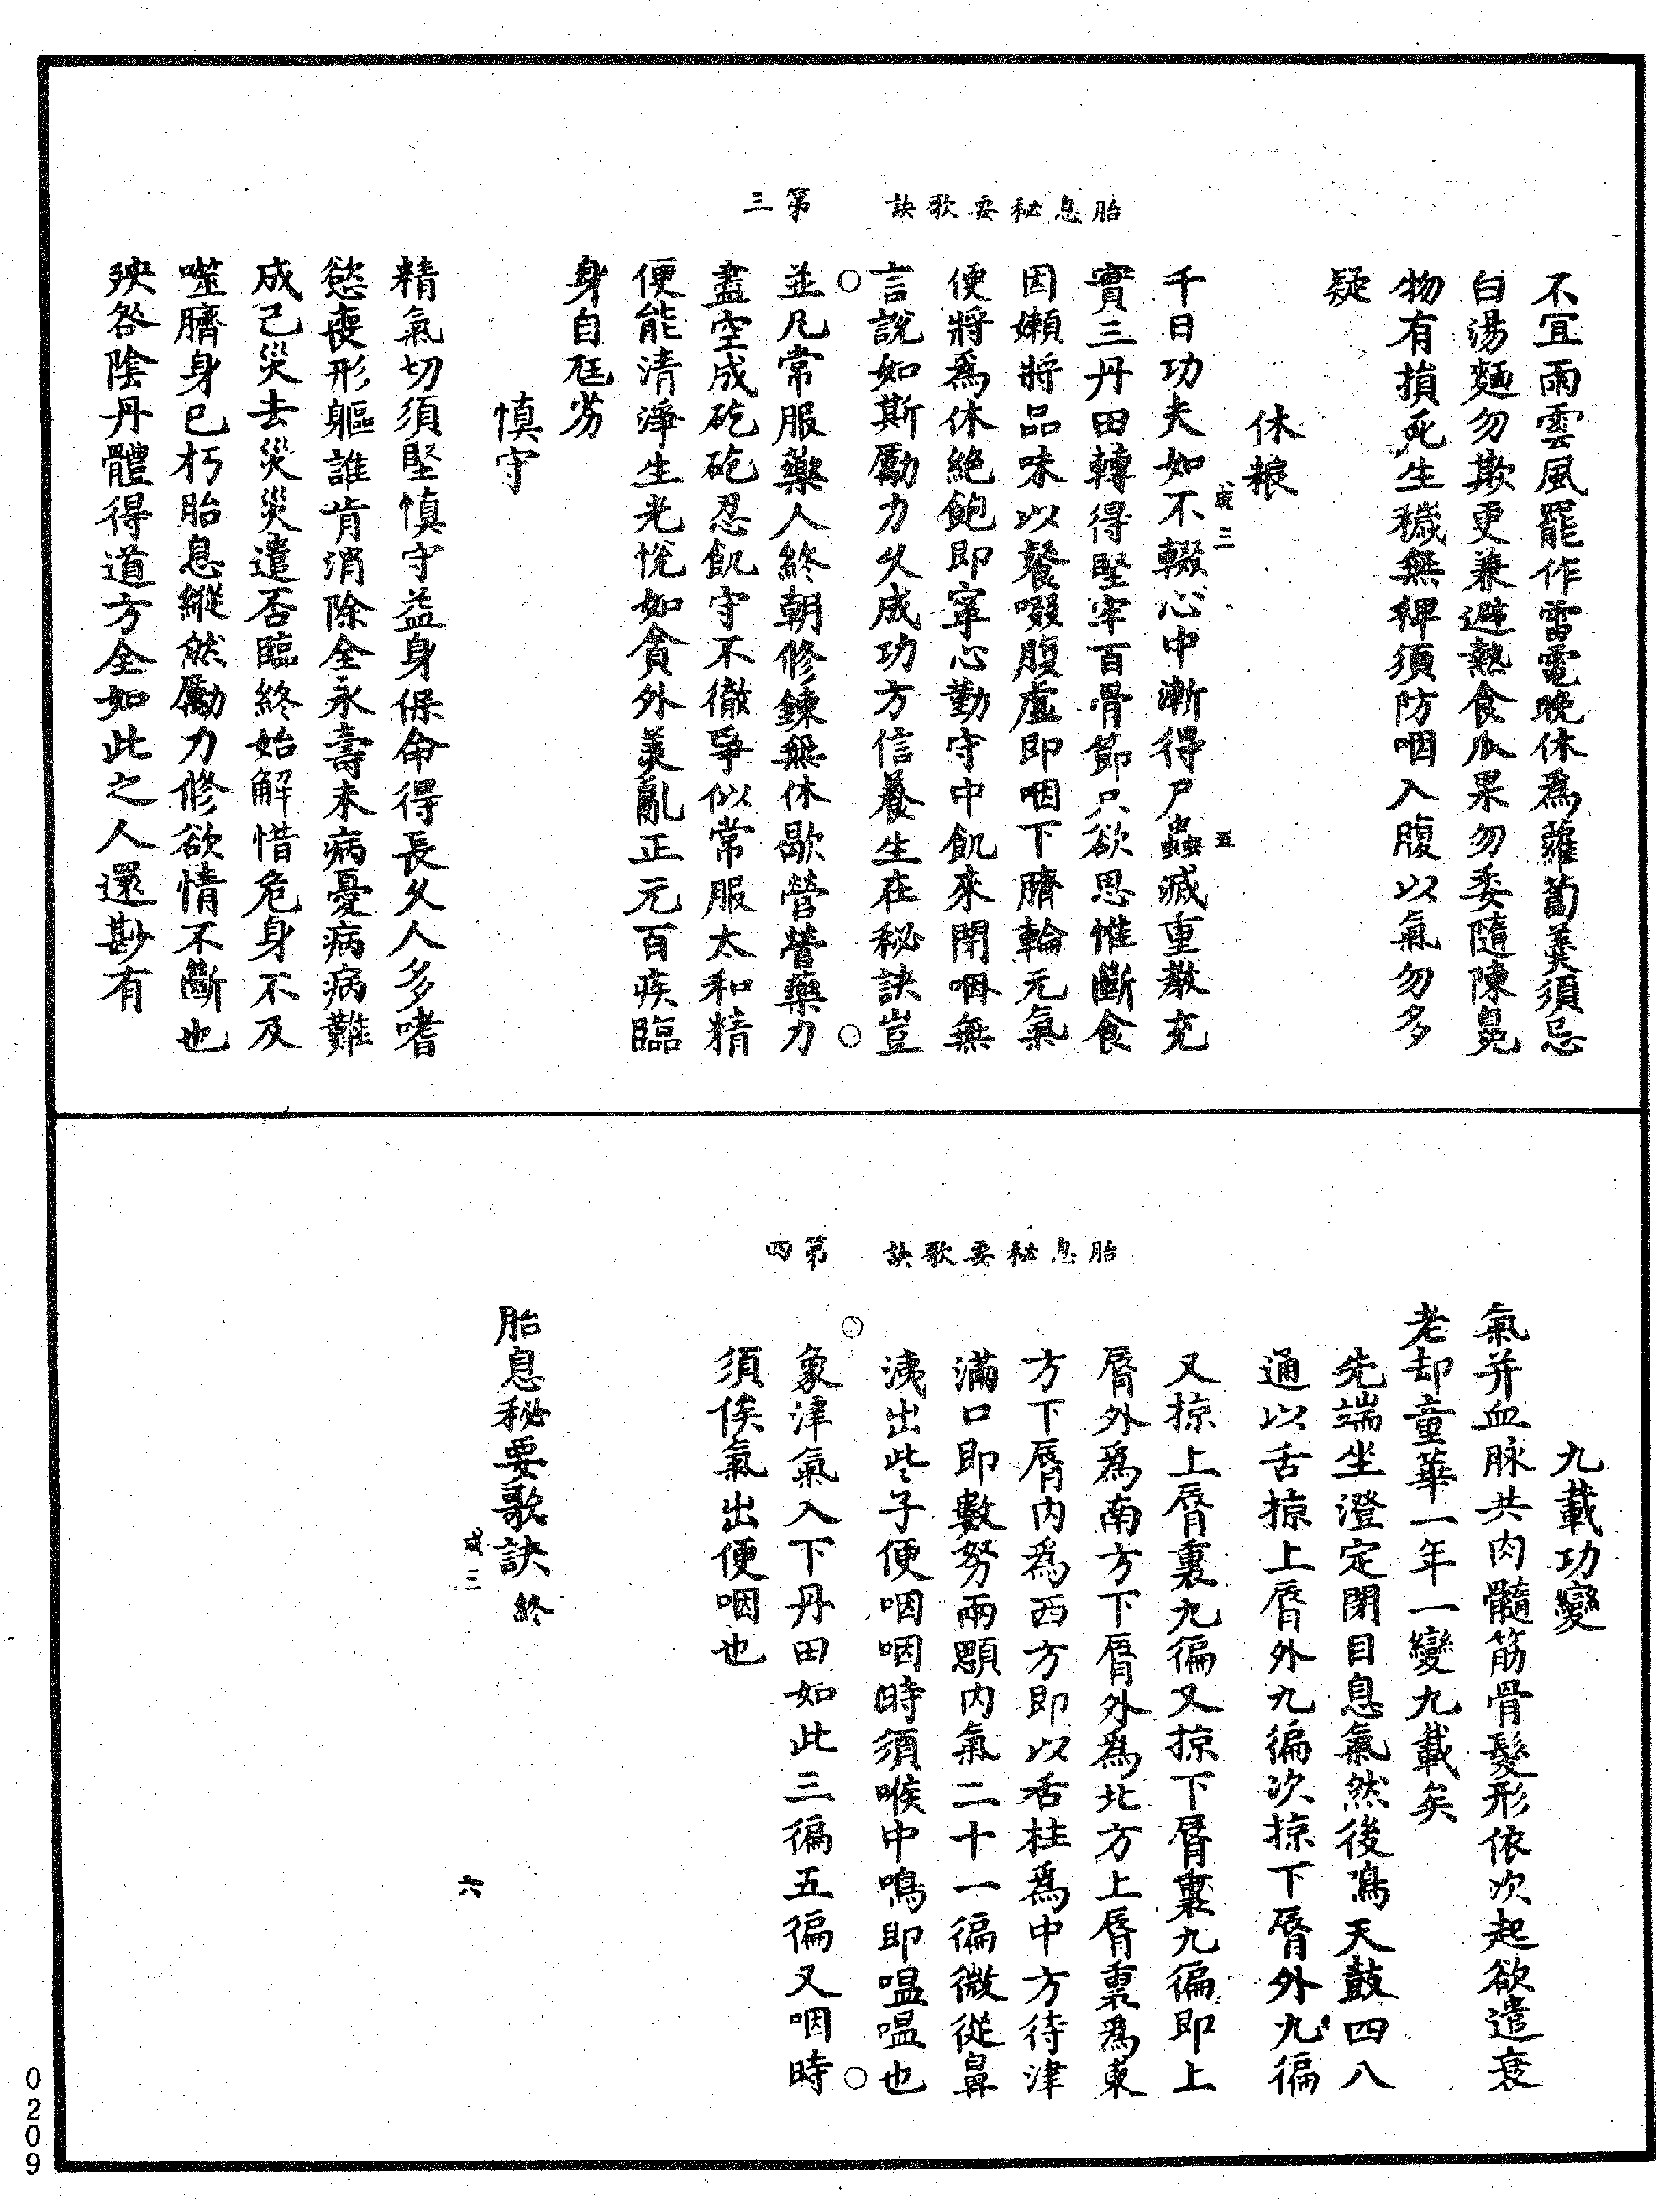 胎息秘要歌訣　第三
不宜雨雲風罷作雷電晚休爲蘿蔔羹須忌
白湯麵勿欺更兼避熟食瓜果勿委隨陳臭
物有損死生穢無稗須防咽入腹以氣勿多
疑
休粮
千日功夫如不輟心中漸得尸蟲滅重教充
咸三　五
實三丹田轉得堅牢百骨節只欲思惟斷食
因嬾將品味以餐啜腹虛即咽下臍輪元氣
便將爲休絶飽即寧心勤守中飢來閉咽無
言說如斯勵力久成功方信養生在秘訣豈
並凡常服藥人終朝修鍊無休歇營營藥力
盡空成矻矻忍飢守不徹爭似常服太和精
便能清淨生光悅如貪外美亂正元百疾臨
身自尫劣
慎守
精氣切須堅慎守益身保命得長久人多嗜
慾喪形軀誰肯消除全永壽未病憂病病難
成已災去災災遣否臨終始解惜危身不及
噬臍身已朽胎息縱然勵力修欲情不斷也
殃咎陰丹體得道方全如此之人還尠有
胎息秘要歌訣　第四
九載功變
氣并血脉共肉髓筋骨髮形依次起欲遣衰
老却童華一年一變九載矣
先端坐澄定閉目息氣然後鳴天鼓四八
通以舌掠上脣外九徧次掠下脣外九徧
又掠上脣裏九徧又掠下脣裏九徧即上
脣外爲南方下脣外爲北方上脣裏爲東
方下脣内爲西方即以舌柱爲中方待津
滿口即數努兩顋内氣二十一徧微從鼻
洟出些子便咽咽時須喉中鳴即嗢嗢也
象津氣入下丹田如此三徧五徧又咽時
須俟氣出便咽也
胎息秘要歌訣終
咸三　六
0209